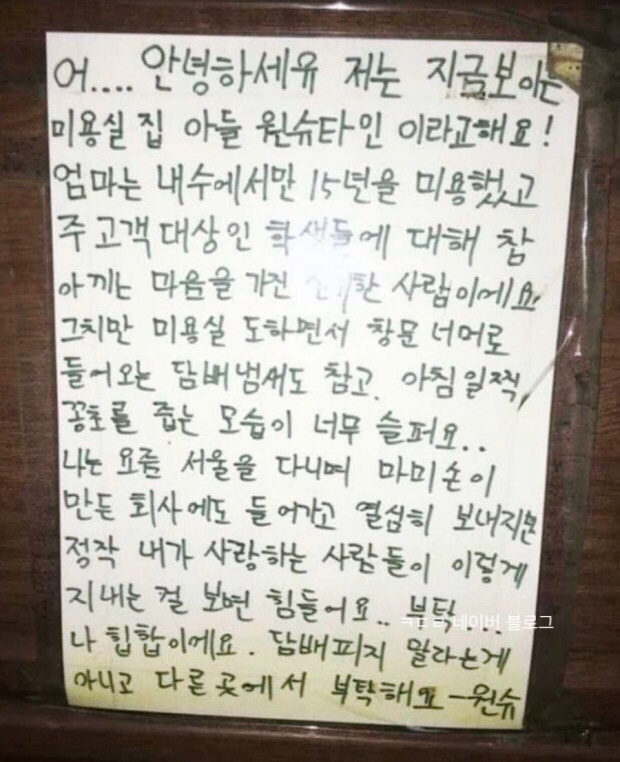 어.... 안녕하세유 저는 지금보이는
미용실 집 아들 원슈타인 이라고해요!
엄마는 내수에서만 15년을 미용했고
주고객대상인 학생들에 대해 참
아끼는 마음을 가진 사람이에요
그치만 미용실 도하면서 창문 너머로
들어오는 담배냄새도 참고, 아침일찍
꽁초를 줍는 모습이 너무 슬퍼요..
나는 요즘 서울을 다니며 마미손이
만든 회사에도 들어가고 열심히 보내지만
정작 내가 사랑하는 사람들이 이렇게
지내는 걸 보면 힘들어요.. 부탁...
나 힙합이에요. 담배피지 말라는게
아니고 다른 곳에서 부탁해요 -원슈
네이버 블로그